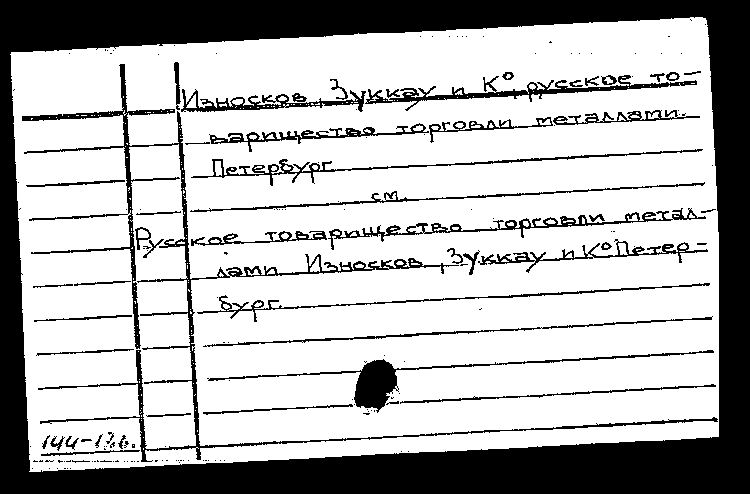 Износков, Зуккау и К⁰, русское то-
варищество торговли металлами.
Петербург
см.
Русское товарищество торговли метал-
лами Износков, Зуккау и К⁰ Петер-
бург.